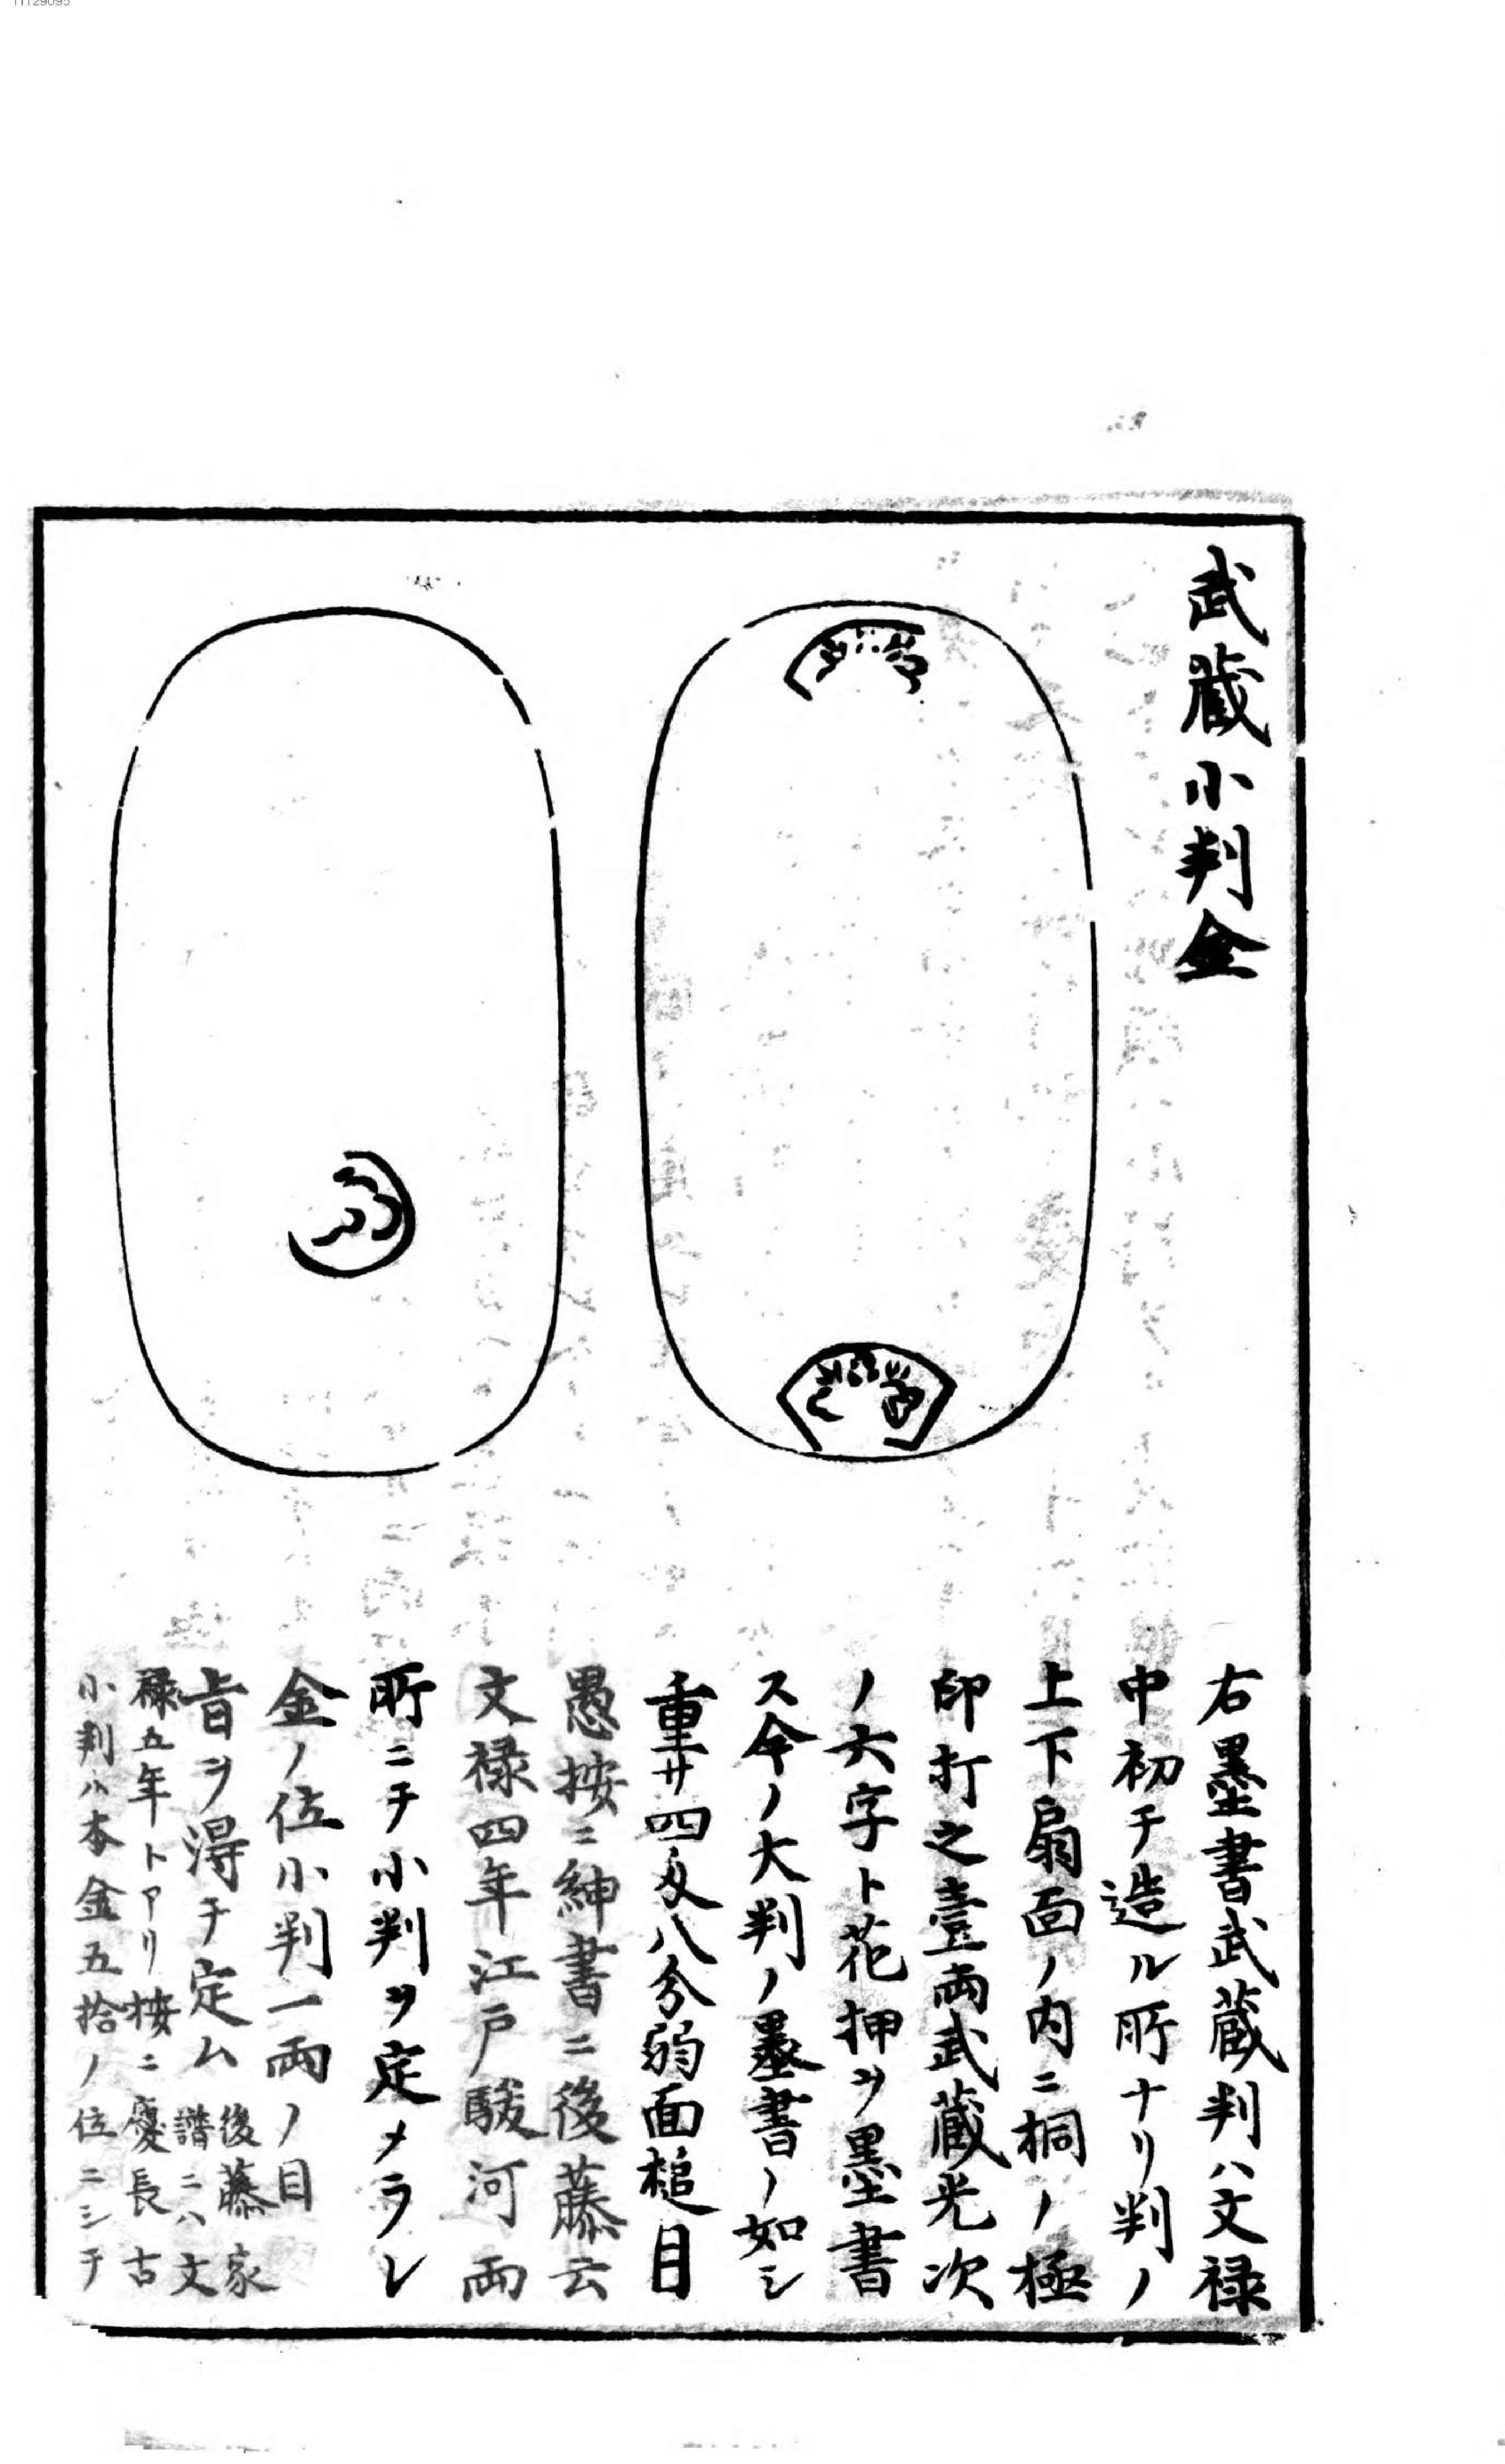 武蔵小判金
右墨書武蔵判ハ文禄
中初テ造ル所ナリ判ノ
上下扇面ノ内ニ桐ノ極
印打之壹両武蔵光次
ノ六字ト花押ヲ墨書
ス今ノ大判ノ墨書ノ如シ
重廿四匁八分弱面槌目
愚按ニ紳書ニ後藤云
文禄四年江戸駿河両
所ニテ小判ヲ定メラレ
金ノ位小判一両ノ目
旨ヲ得テ定ム後藤家
譜ニハ文
禄五年トアリ按ニ慶長古
小判ハ本金五拾ノ位ニシテ
11129095